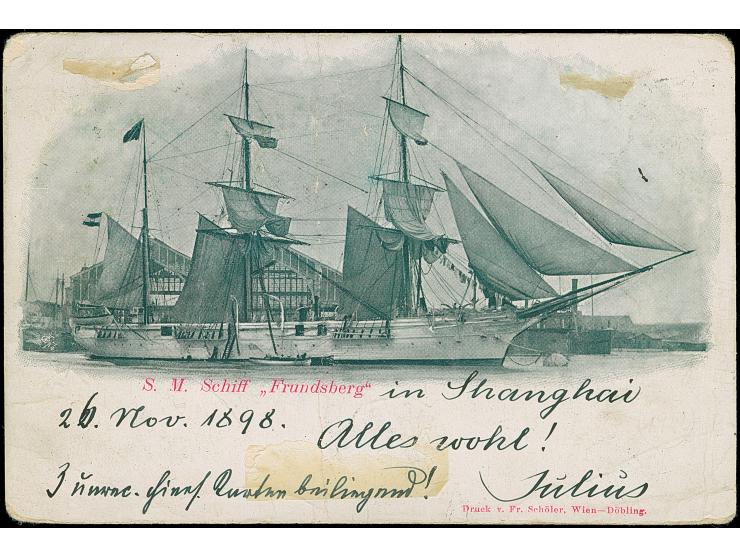 S. M. Schiff „Frundsberg“ in Shanghai
26. Nov. 1898.
Alles wohl!
3 unrec. chines. Karten beiliegend!
Julius
Druck v. Fr. Schöler, Wien—Döbling.